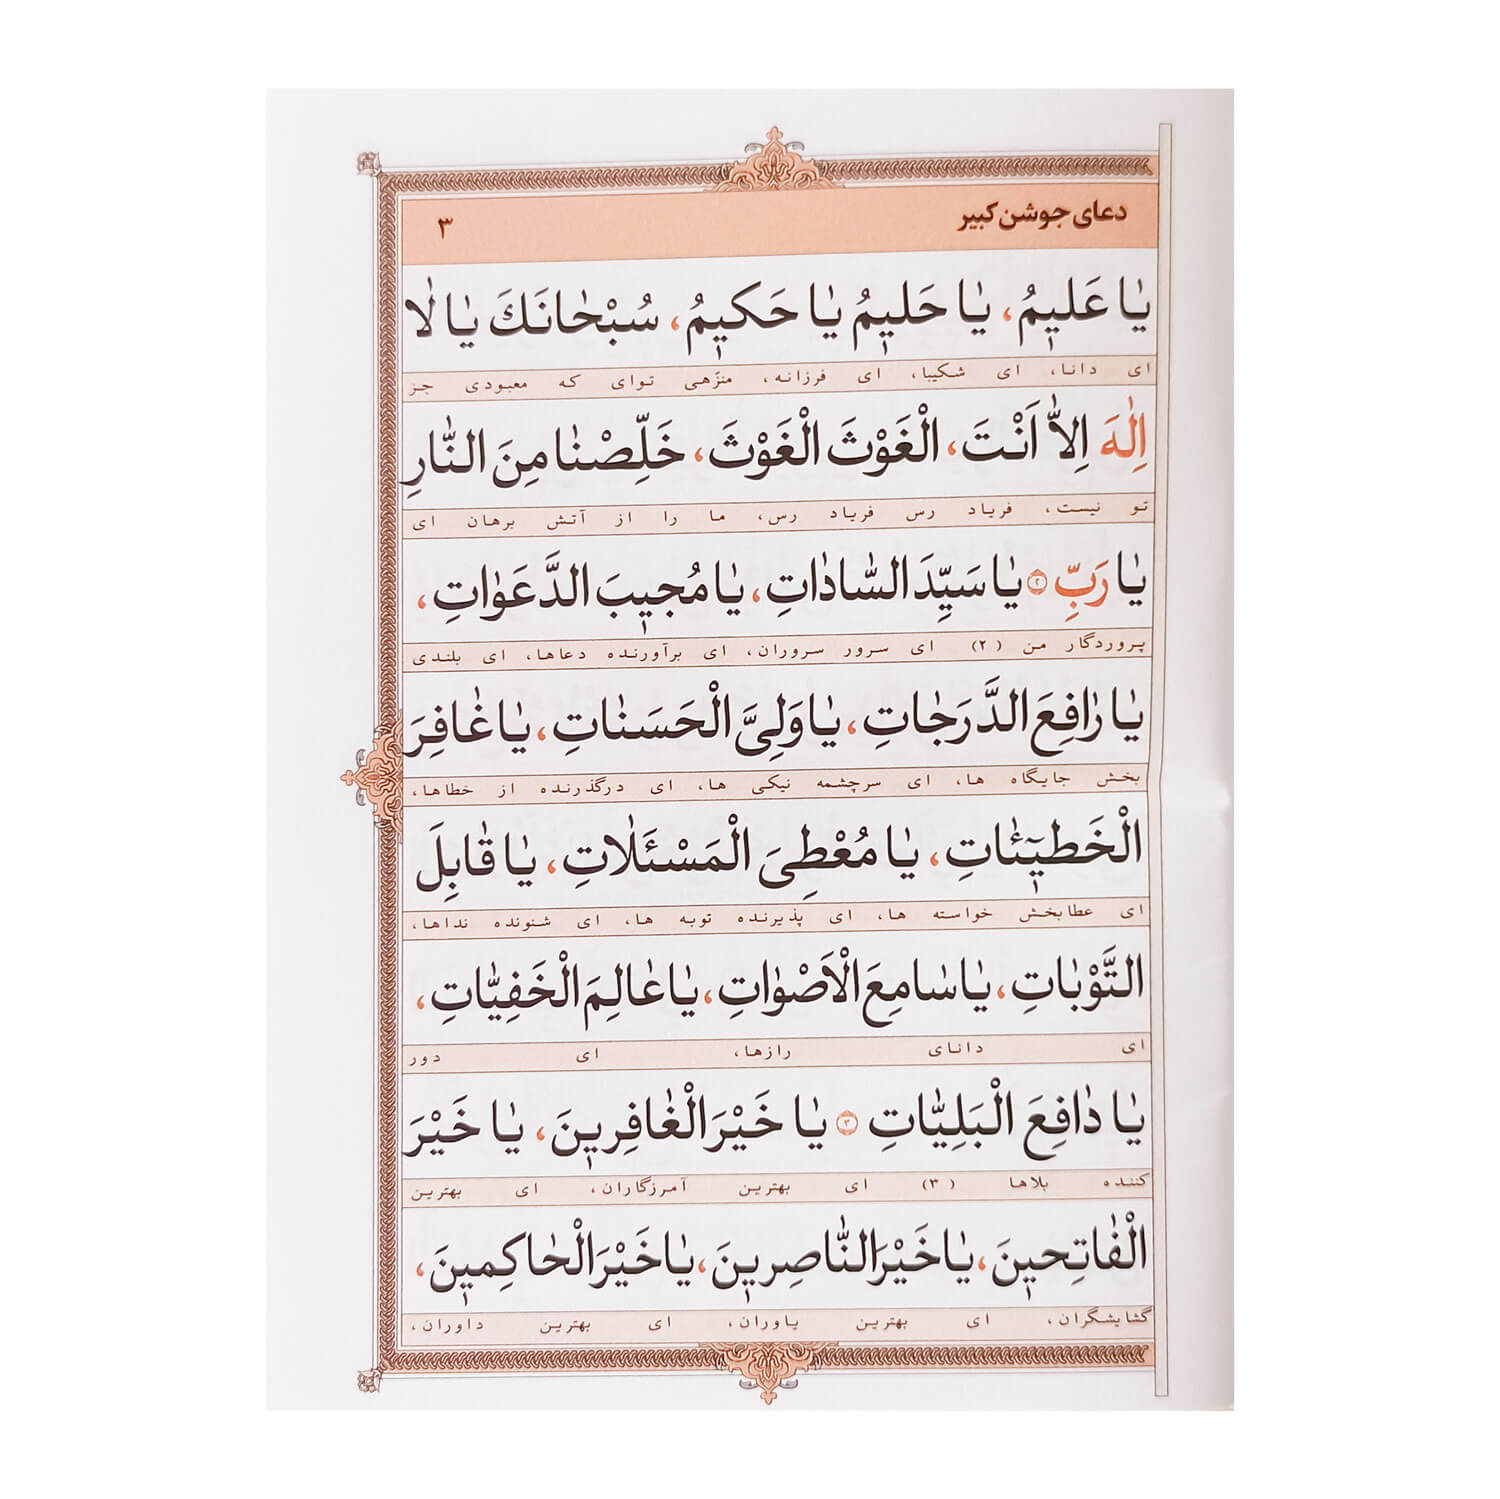 دعای جوشن کبیر ۳
یٰا عَلیٖمُ، یٰا حَلیٖمُ یٰا حَکیٖمُ، سُبْحٰانَکَ یٰا لٰا
ای دانا، ای شکیبا، ای فرزانه، منزّهی توای که معبودی جز
اِلٰهَ اِلاّٰ اَنْتَ، الْغَوْثَ الْغَوْثَ، خَلِّصْنٰا مِنَ النّٰارِ
تو نیست، فریاد رس فریاد رس، ما را از آتش برهان ای
یٰا رَبِّ ۲ یٰا سَیِّدَ السّٰادٰاتِ، یٰا مُجیٖبَ الدَّعَوٰاتِ،
پروردگار من (۲) ای سرور سروران، ای برآورنده دعاها، ای بلندی
یٰا رٰافِعَ الدَّرَجٰاتِ، یٰا وَلِیَّ الْحَسَنٰاتِ، یٰا غٰافِرَ
بخش جایگاه ها، ای سرچشمه نیکی ها، ای درگذرنده از خطاها،
الْخَطیٖۤئٰاتِ، یٰا مُعْطِیَ الْمَسْئَلٰاتِ، یٰا قٰابِلَ
ای عطابخش خواسته ها، ای پذیرنده توبه ها، ای شنونده نداها،
التَّوْبٰاتِ، یٰا سٰامِعَ الْاَصْوٰاتِ، یٰا عٰالِمَ الْخَفِیّٰاتِ،
ای دانای رازها، ای دور
یٰا دٰافِعَ الْبَلِیّٰاتِ ۳ یٰا خَیْرَ الْغٰافِریٖنَ، یٰا خَیْرَ
کننده بلاها (۳) ای بهترین آمرزگاران، ای بهترین
الْفٰاتِحیٖنَ، یٰا خَیْرَ النّٰاصِریٖنَ، یٰا خَیْرَ الْحٰاکِمیٖنَ،
گشایشگران، ای بهترین یاوران، ای بهترین داوران،